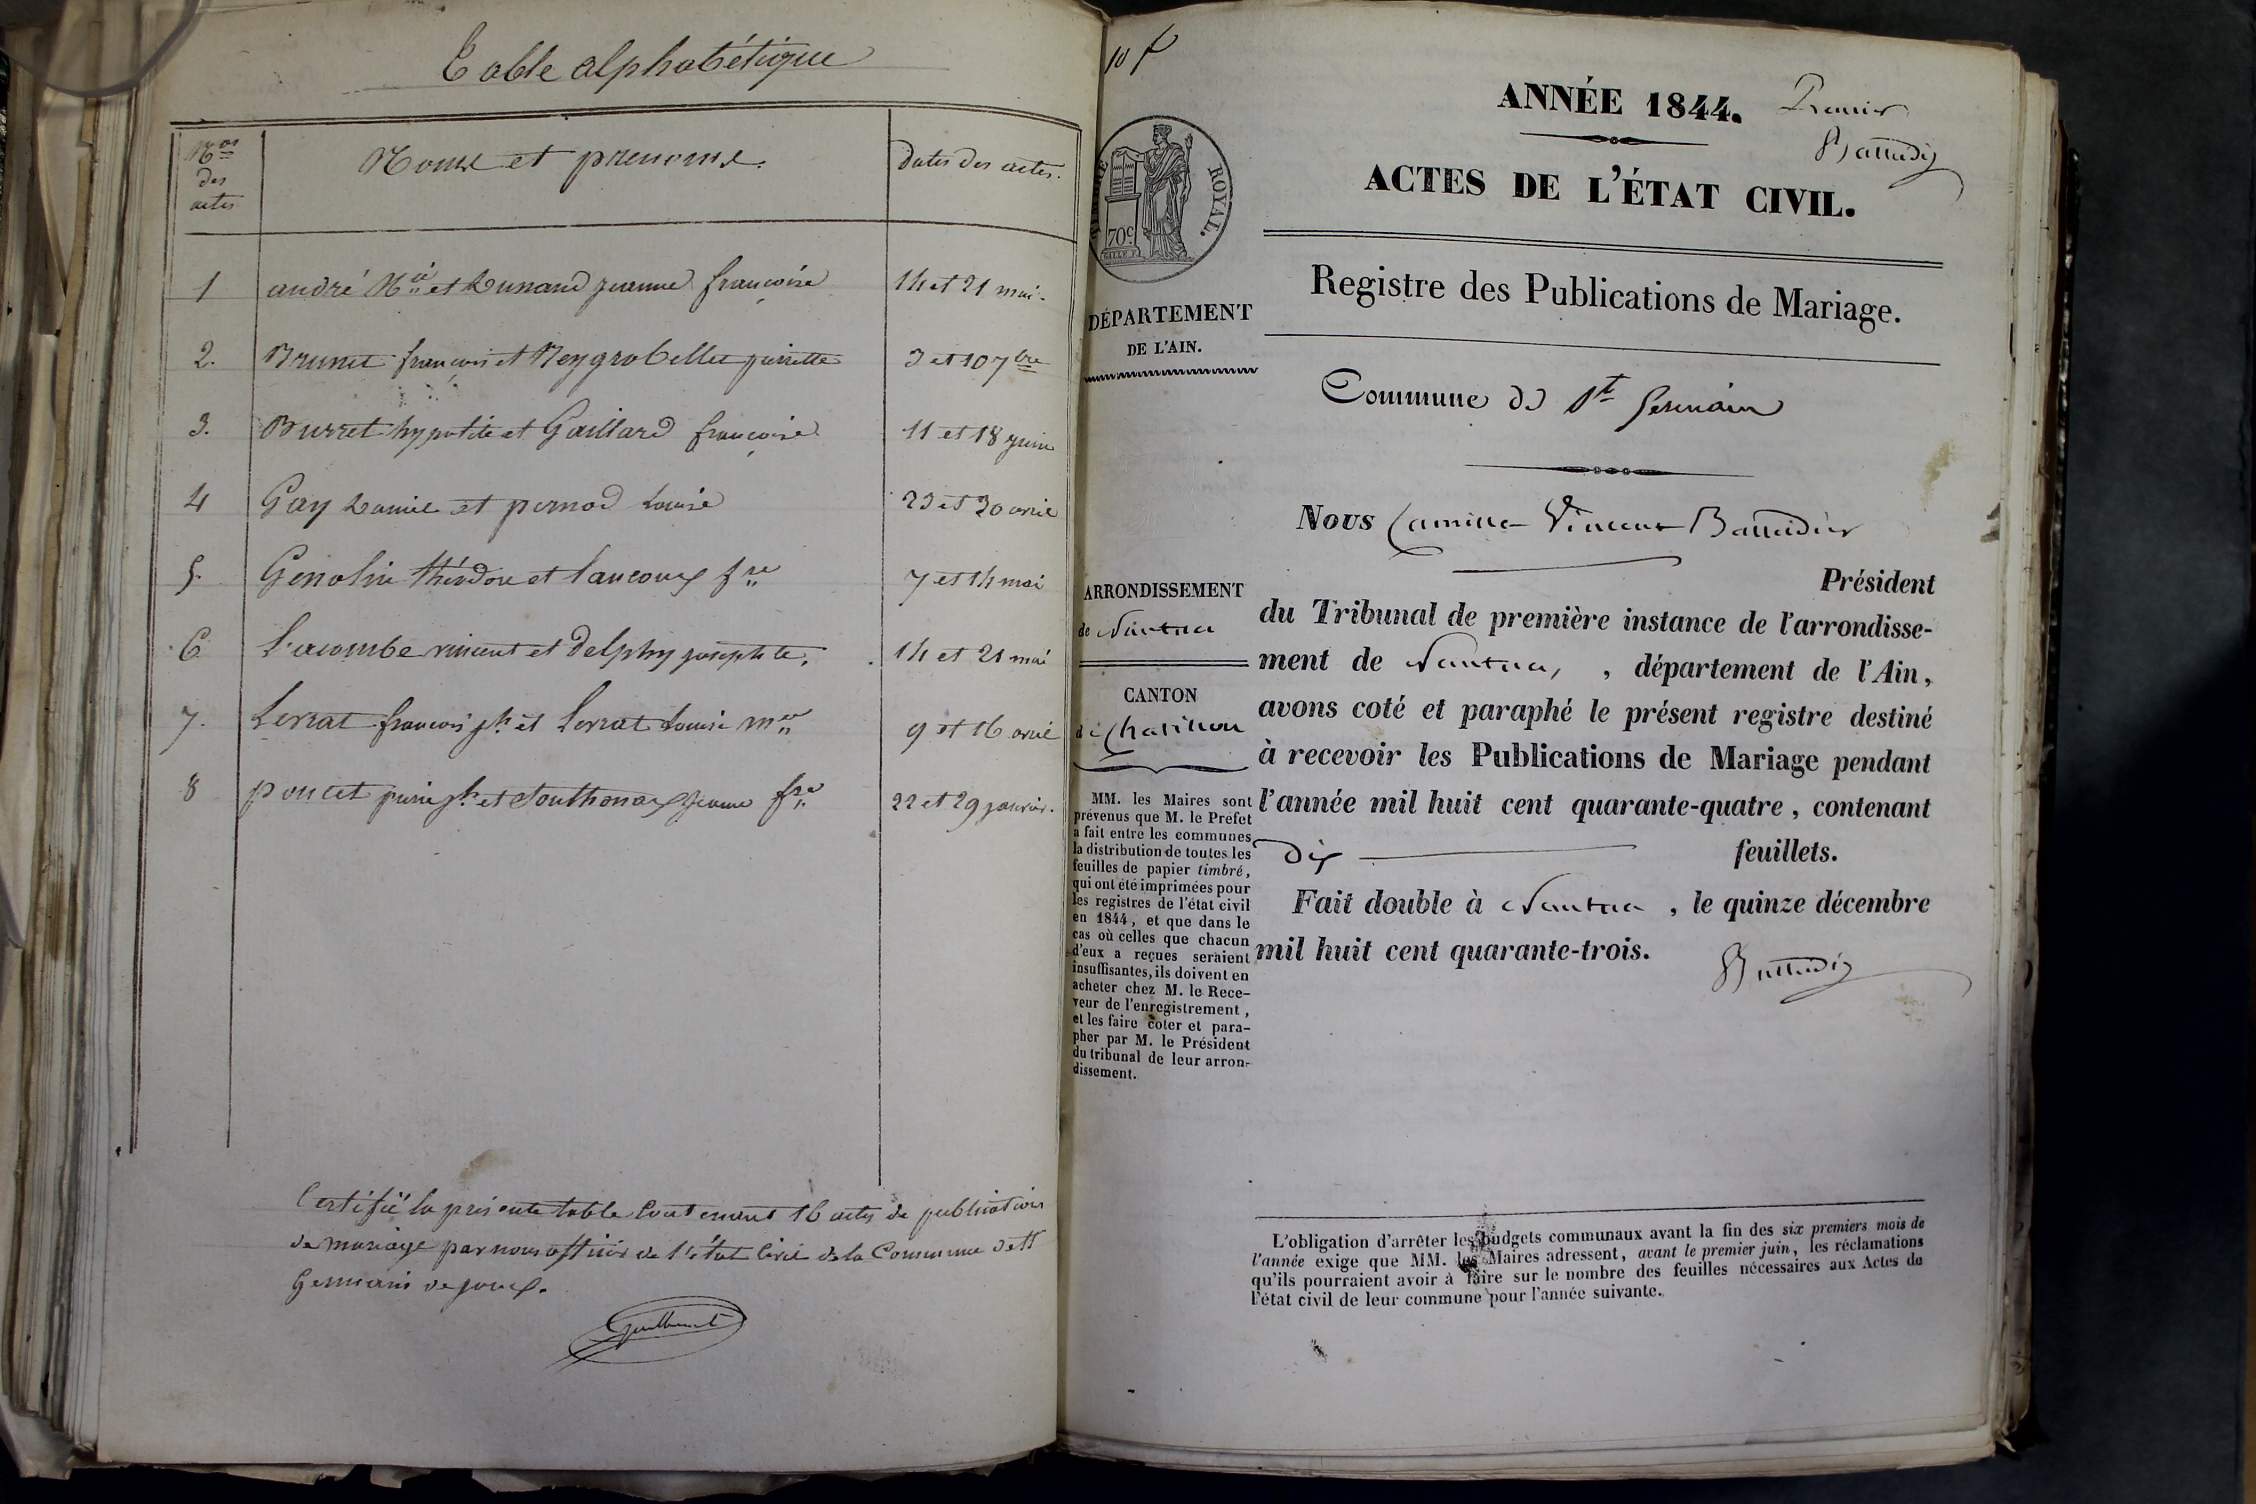 Table alphabétique
Nos des actes
Noms et prenoms.
dates des actes.
1 andré et Lunand jeanne françoise 14 et 21 mai.
2. Brunet françois et Neygrobellet pierrette 3 et 10 7bre
3. Burret hypolite et Gaillard françoise 11 et 18 juin
4 Gay et pernod Louise 23 et 30 avril
5. théodore et fse 7 et 14 mai
6 Lacombe vincent et Delphy josephte, 14 et 21 mai
7. Lerrat françois jh et Lerrat Louise 9 et 16 avril
8 poncet pierre jh et Southonax jeanne fse 22 et 29 janvier.
Certifié la présente table Contenant 16 actes de publications
de mariage par nous officier de l'état Civil de la Commune de St
Germain de joux.
10 f
ANNÉE 1844. Premier
ACTES DE L'ÉTAT CIVIL.
ROYAL.
70c
Registre des Publications de Mariage.
DÉPARTEMENT
DE L'AIN.
Commune de St Germain
Nous Camille Vincent Battaidier
Président
du Tribunal de première instance de l'arrondisse-
ment de Nantua, , département de l'Ain,
avons coté et paraphé le présent registre destiné
à recevoir les Publications de Mariage pendant
l'année mil huit cent quarante-quatre, contenant
dix feuillets.
Fait double à Nantua , le quinze décembre
mil huit cent quarante-trois.
ARRONDISSEMENT
de Nantua
CANTON
de Chatillon
MM. les Maires sont
prévenus que M. le Préfet
a fait entre les communes
la distribution de toutes les
feuilles de papier timbré,
qui ont été imprimées pour
les registres de l'état civil
en 1844, et que dans le
cas où celles que chacun
d'eux a reçues seraient
insuffisantes, ils doivent en
acheter chez M. le Rece-
veur de l'enregistrement,
et les faire coter et para-
pher par M. le Président
du tribunal de leur arron-
dissement.
L'obligation d'arrêter les budgets communaux avant la fin des six premiers mois de
l'année exige que MM. les Maires adressent, avant le premier juin, les réclamations
qu'ils pourraient avoir à faire sur le nombre des feuilles nécessaires aux Actes de
l'état civil de leur commune pour l'année suivante.